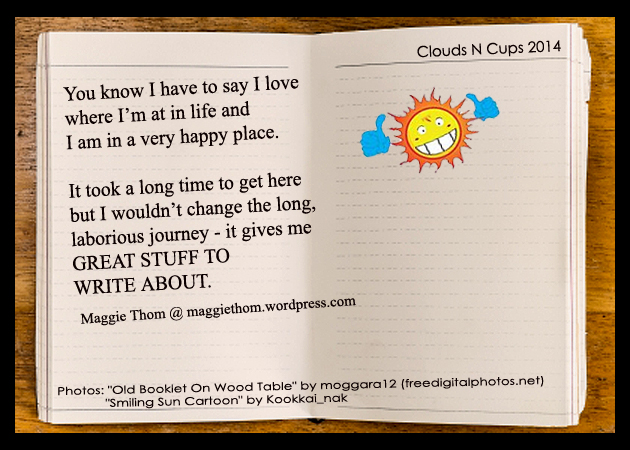 Clouds N Cups 2014
You know I have to say I love
where I'm at in life and
I am in a very happy place.
It took a long time to get here
but I wouldn't change the long,
laborious journey - it gives me
GREAT STUFF TO
WRITE ABOUT.
Maggie Thom @ maggiethom.wordpress.com
Photos: "Old Booklet On Wood Table" by moggara12 (freedigitalphotos.net)
"Smiling Sun Cartoon" by Kookkai_nak